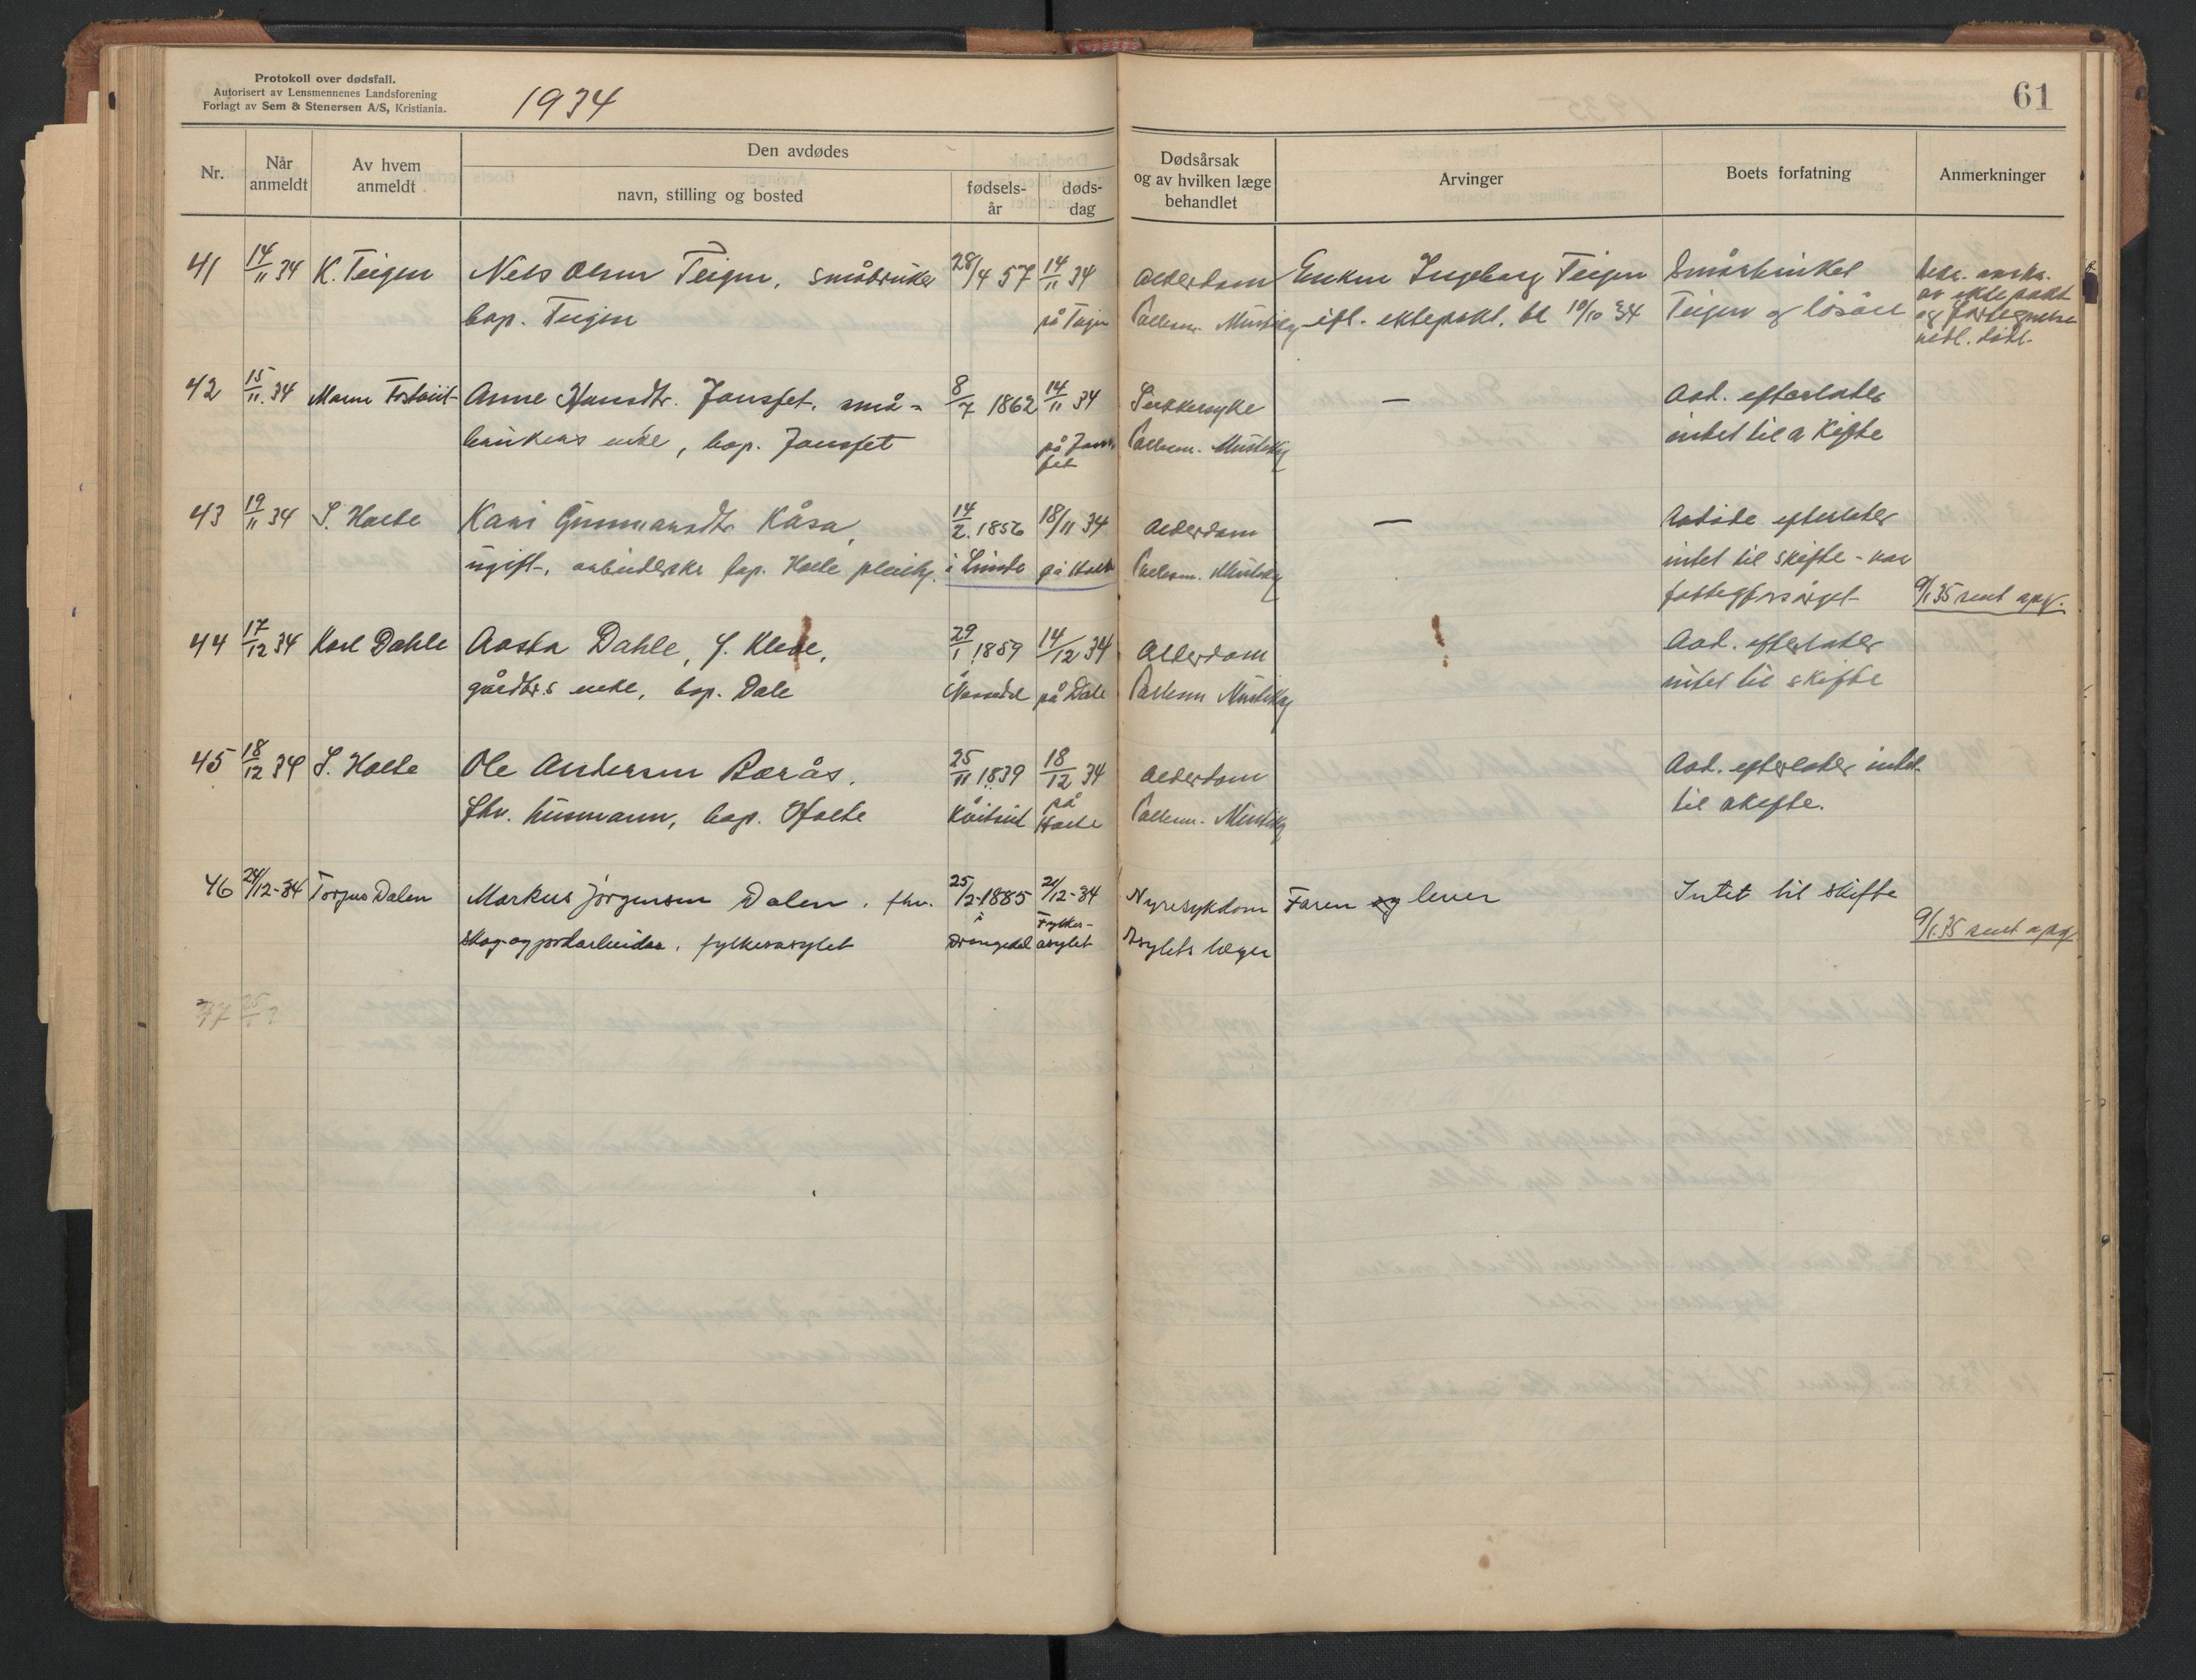 Protokoll over dødsfall.
Autorisert av Lensmennenes Landsforening
Forlagt av Sem & Stenersen A/S, Kristiania.
1934
61
Nr.
Når anmeldt
Av hvem anmeldt
Den avdødes
navn, stilling og bosted
fødsels-år
døds-dag
Dødsårsak og av hvilken læge behandlet
Arvinger
Boets forfatning
Anmerkninger
41 14/11 34 K. Teigen Nels Olsen Teigen, småbruker 28/4 57 14/11 34 Alderdom Enken Ingeborg Teigen Småbruket
bop. Teigen på Teigen ifl. ektepakt. bl 10/10 34 Teigen og løsøre
av ektepakt
og fortegnelse
42 15/11 34 Anne Hansdtr. Jonsfet, små- 8/7 1862 14/11 34 Sukkersyke — Avd. efterlater
brukers enke, bop. Jonsfet på Jons- intet til skifte
fet
43 19/11 34 S. Holte Kari Gunnarsdtr. Kåsa, 14/2 1856 18/11 34 Alderdom — Avdøde efterlater
ugift, arbeiderske bop. Holte pleiehj. i Lunde på Holte intet til skifte - var
fattigforsørget 9/1 35 sendt opg.
44 17/12 34 Karl Dahle Aaste Dahle, f. Kleve, 29/1 1859 14/12 34 Alderdom Avd. efterlater
gårdbr.s enke, bop. Dale på Dale intet til skifte
45 18/12 34 S. Holte Ole Andersen Borås, 25/11 1839 18/12 34 Alderdom Avd. efterlater intet
fhv. husmann, bop. Holte på Holte til skifte.
46 24/12-34 Torjus Dalen Markus Jørgensen Dalen, fhv. 25/2-1885 21/12-34 Nyresykdom Faren og lever Intet til skifte
skog- og jordarbeider, fylkesasylet i Drangedal Fylkes-asylet Asylets læger 9/1 35 sendt opg.
47